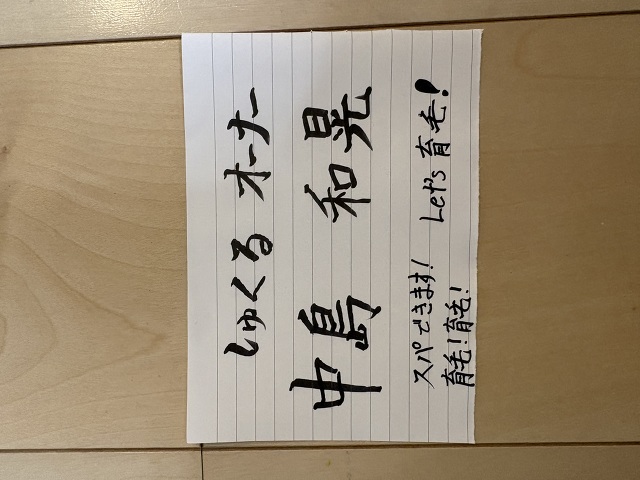 しゅくる オーナー
中島 和晃
スパできます! Let's 育毛!
育毛!育毛!